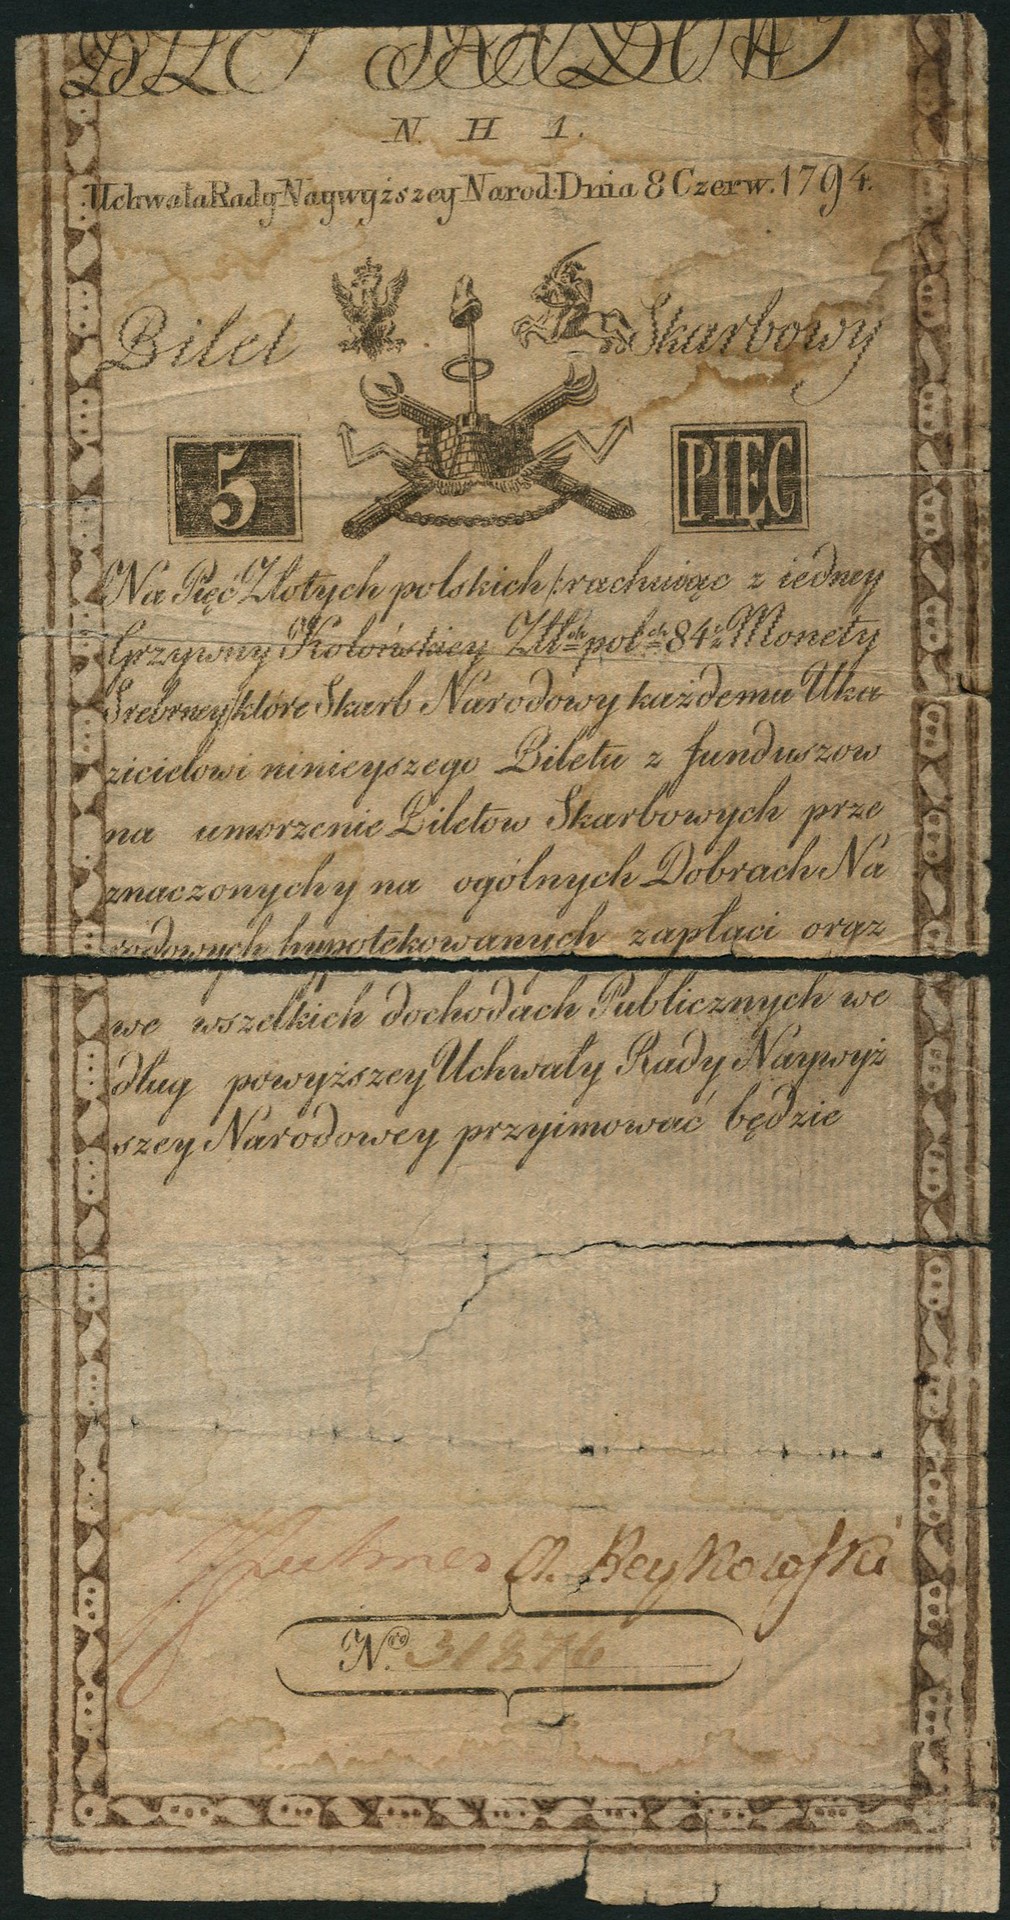 N. H 1.
Uchwała Rady Naywyższey Narod. Dnia 8 Czerw. 1794.
Bilet Skarbowy
5 PIĘC
Na Pięć Złotych polskich /:rachuiąc z iedney
Grzywny Kolońskiey Zł:ch pol:ch 84. Monety
Srebrney/ które Skarb Narodowy każdemu Uka
zicielowi ninieyszego Biletu z funduszow
na umorzenie Biletow Skarbowych prze
znaczonych y na ogólnych Dobrach Na
rodowych hypotekowanych zapłaci oraz
we wszelkich dochodach Publicznych we
dług powyższey Uchwały Rady Naywyż
szey Narodowey przyimować będzie
A. Reykowski
Nro. 31276